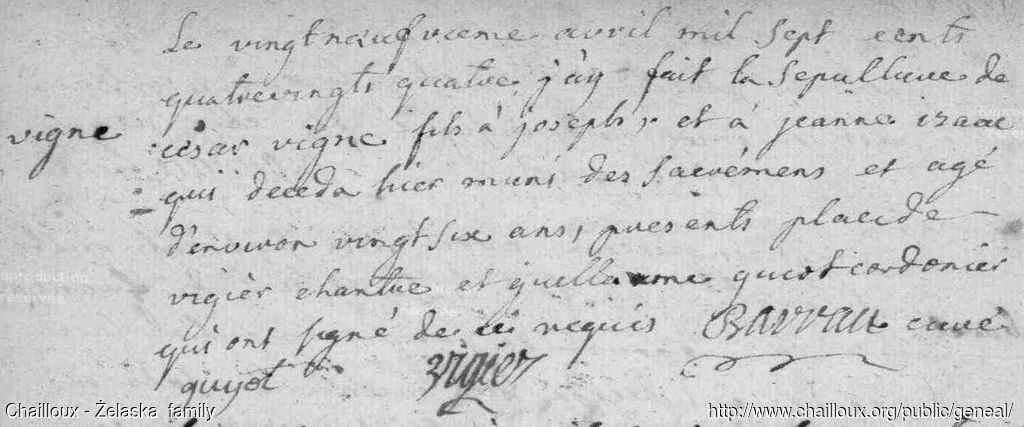 Le vingtneufvieme avril mil sept cents
quatrevingts quatre, j'ay fait la sepulture de
vigne
césar vigne fils à joseph, et à jeanne izaac
qui deceda hier muni des sacrémens et agé
d'environ vingt six ans, presents placide
vigiér chantre et guillaume guiot cordonier
qui ont signé de ce requis Barrau curé
guyot vigier
reproduction
reserves
Chailloux - Żelaska family
http://www.chailloux.org/public/geneal/